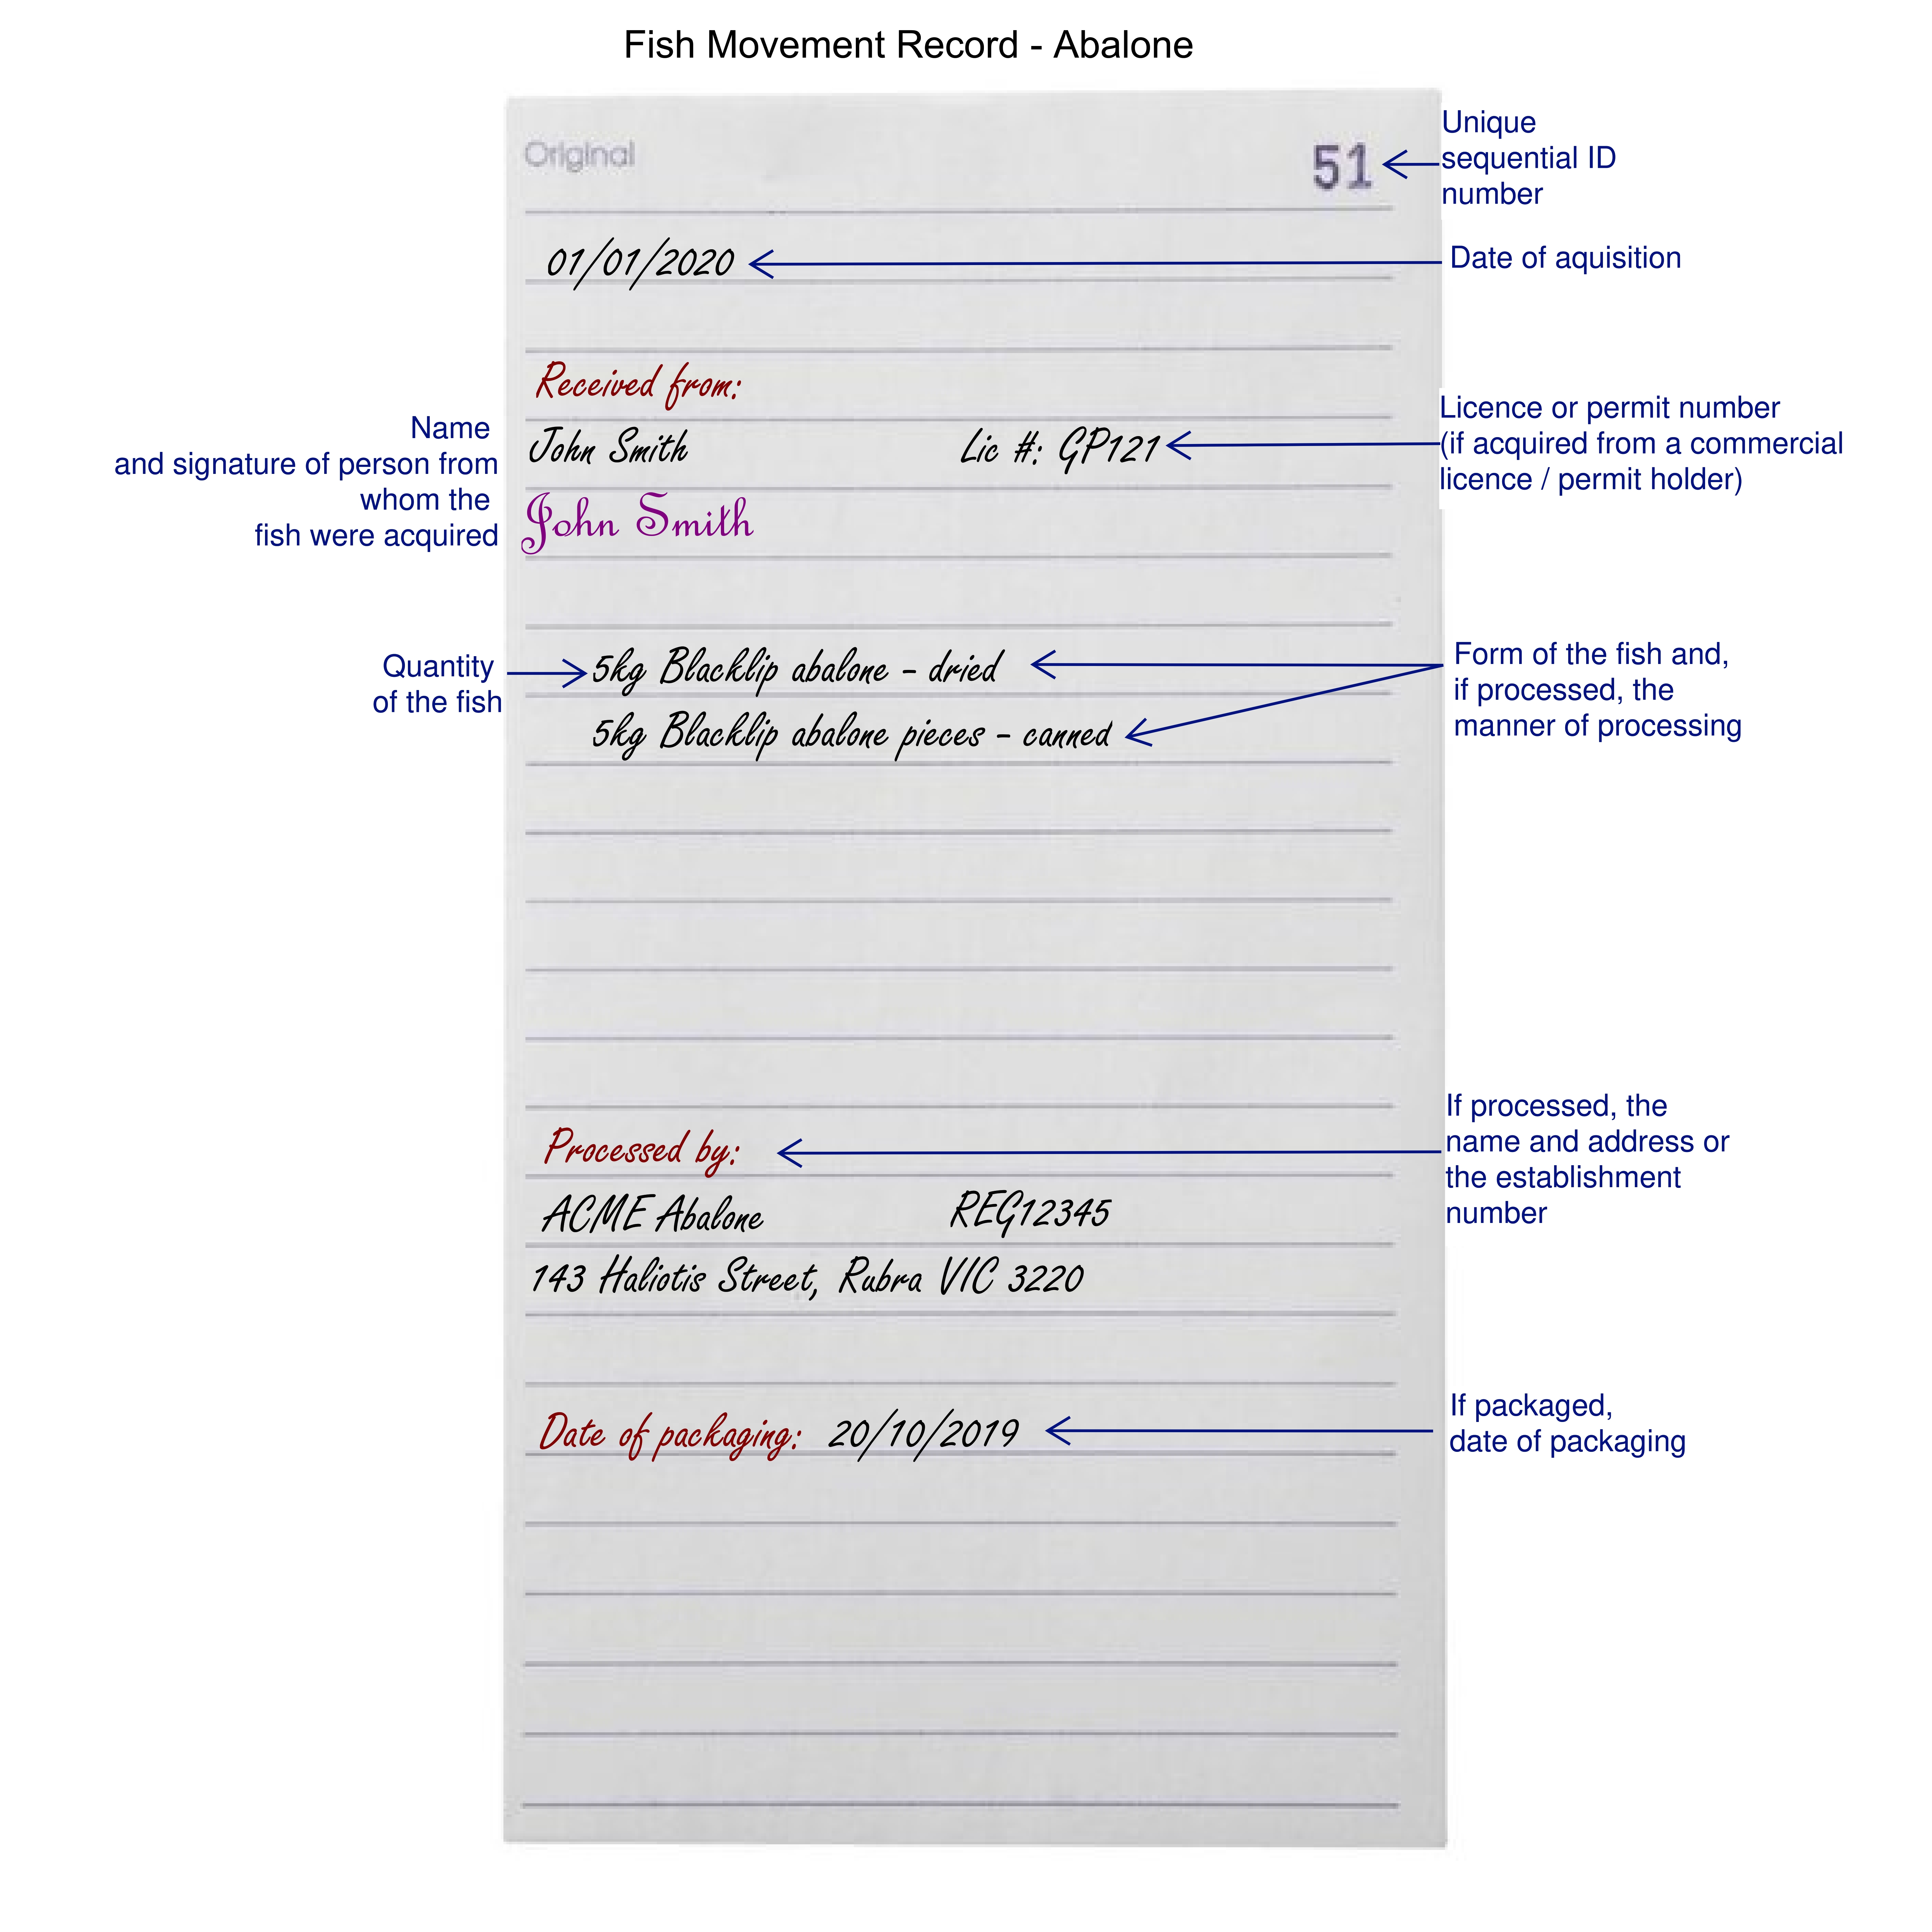 Fish Movement Record - Abalone
Original
51
Unique
sequential ID
number
01/01/2020
Date of aquisition
Received from:
Name
and signature of person from
whom the
fish were acquired
John Smith
Lic #: GP121
Licence or permit number
(if acquired from a commercial
licence / permit holder)
John Smith
Quantity
of the fish
5kg Blacklip abalone - dried
5kg Blacklip abalone pieces - canned
Form of the fish and,
if processed, the
manner of processing
Processed by:
If processed, the
name and address or
the establishment
number
ACME Abalone
REG12345
143 Haliotis Street, Rubra VIC 3220
Date of packaging: 20/10/2019
If packaged,
date of packaging